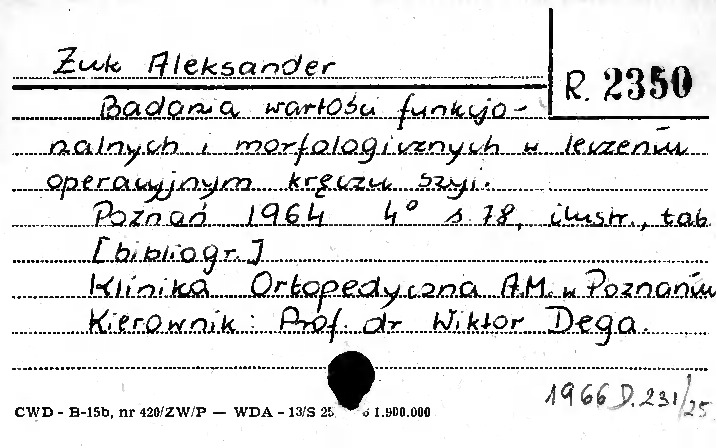 Żuk Aleksander
R. 2350
Badania wartości funkcjo-
nalnych i morfologicznych w leczeniu
operacyjnym kręczu szyi.
Poznań 1964 4° s 78, ilustr., tab.
[bibliogr.]
Klinika Ortopedyczna A.M. w Poznaniu
Kierownik: Prof. dr Wiktor Dega.
1966 D. 231/25
CWD - B-15b, nr 420/ZW/P — WDA - 13/S 25 1.900.000